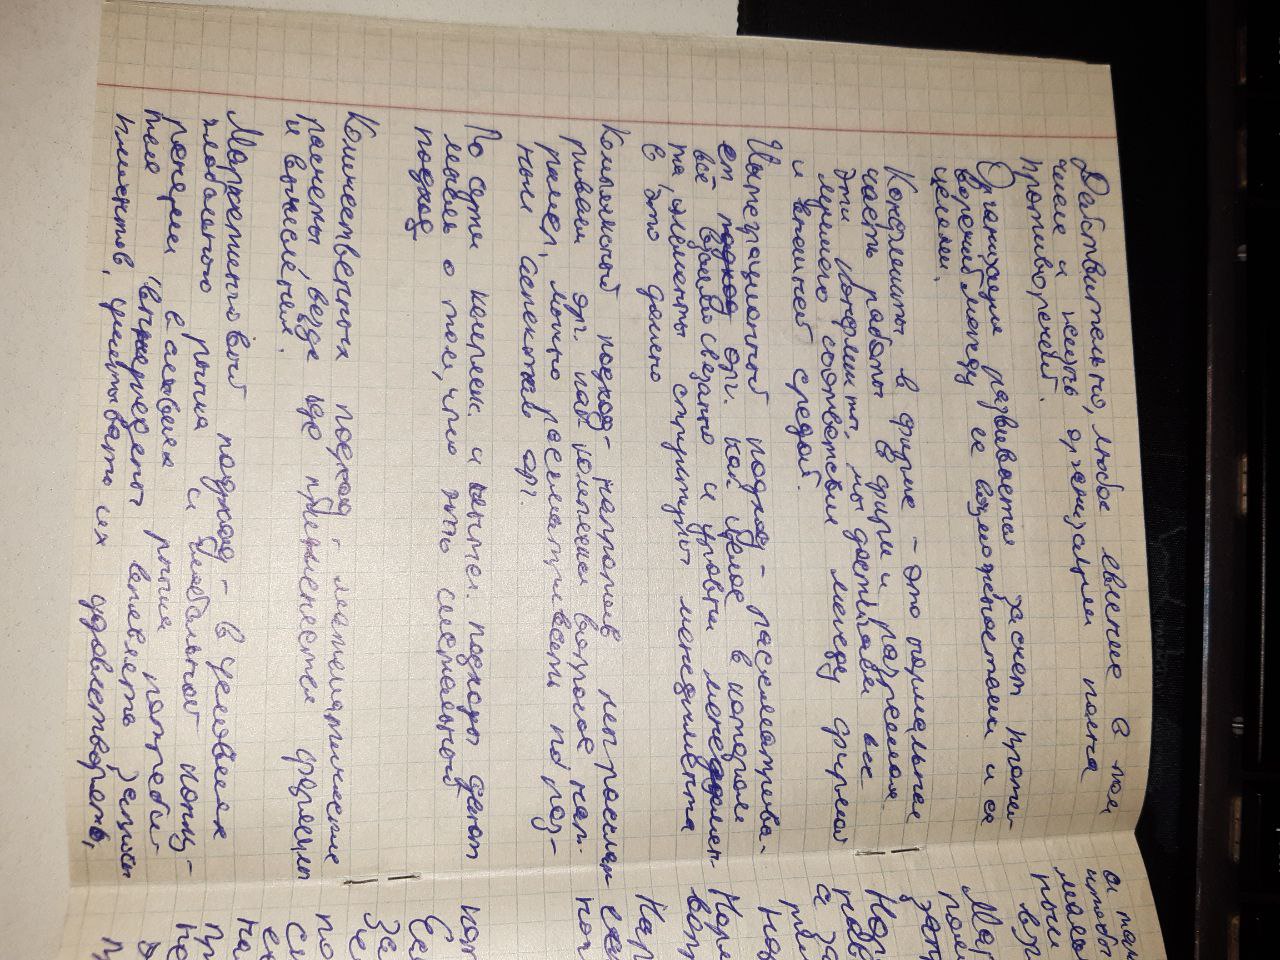 Действительно, любое явление в том
числе и жизнь организации полна
противоречий.
Организация развивается засчет проти-
воречий между ее возможностями и ее
целями.
Конфликты в фирме - это нормальная
часть работы в фирме и, разрешая
эти конфликты, мы достигаем все
лучшего соответствия между фирмой
и внешней средой.
Интеграционный подход - рассматрива-
ет подход орг. как целое в котором
всё взаимосвязанно и уровни менеджмен-
та, элементы структуры менеджмента
в это должно
Комплексный подход - напротив мы рассмат
риваем орг. как комплекс вопросов, нап-
ример, можно рассматривать по раз-
ным аспектам орг.
По сути комплек. и инте. подходы дают
мысль о том, что это системный
подход
Количественных подход - математические
расчеты, везде где применяется формулы
и вычисления.
Маркетинговый подход - в условиях
глобального рынка и глобальной конку-
ренции в условиях рынка потреби-
теля вынуждены выявлять запросы
клиентов, учитывать их удовлетворять,
а так
чтобы